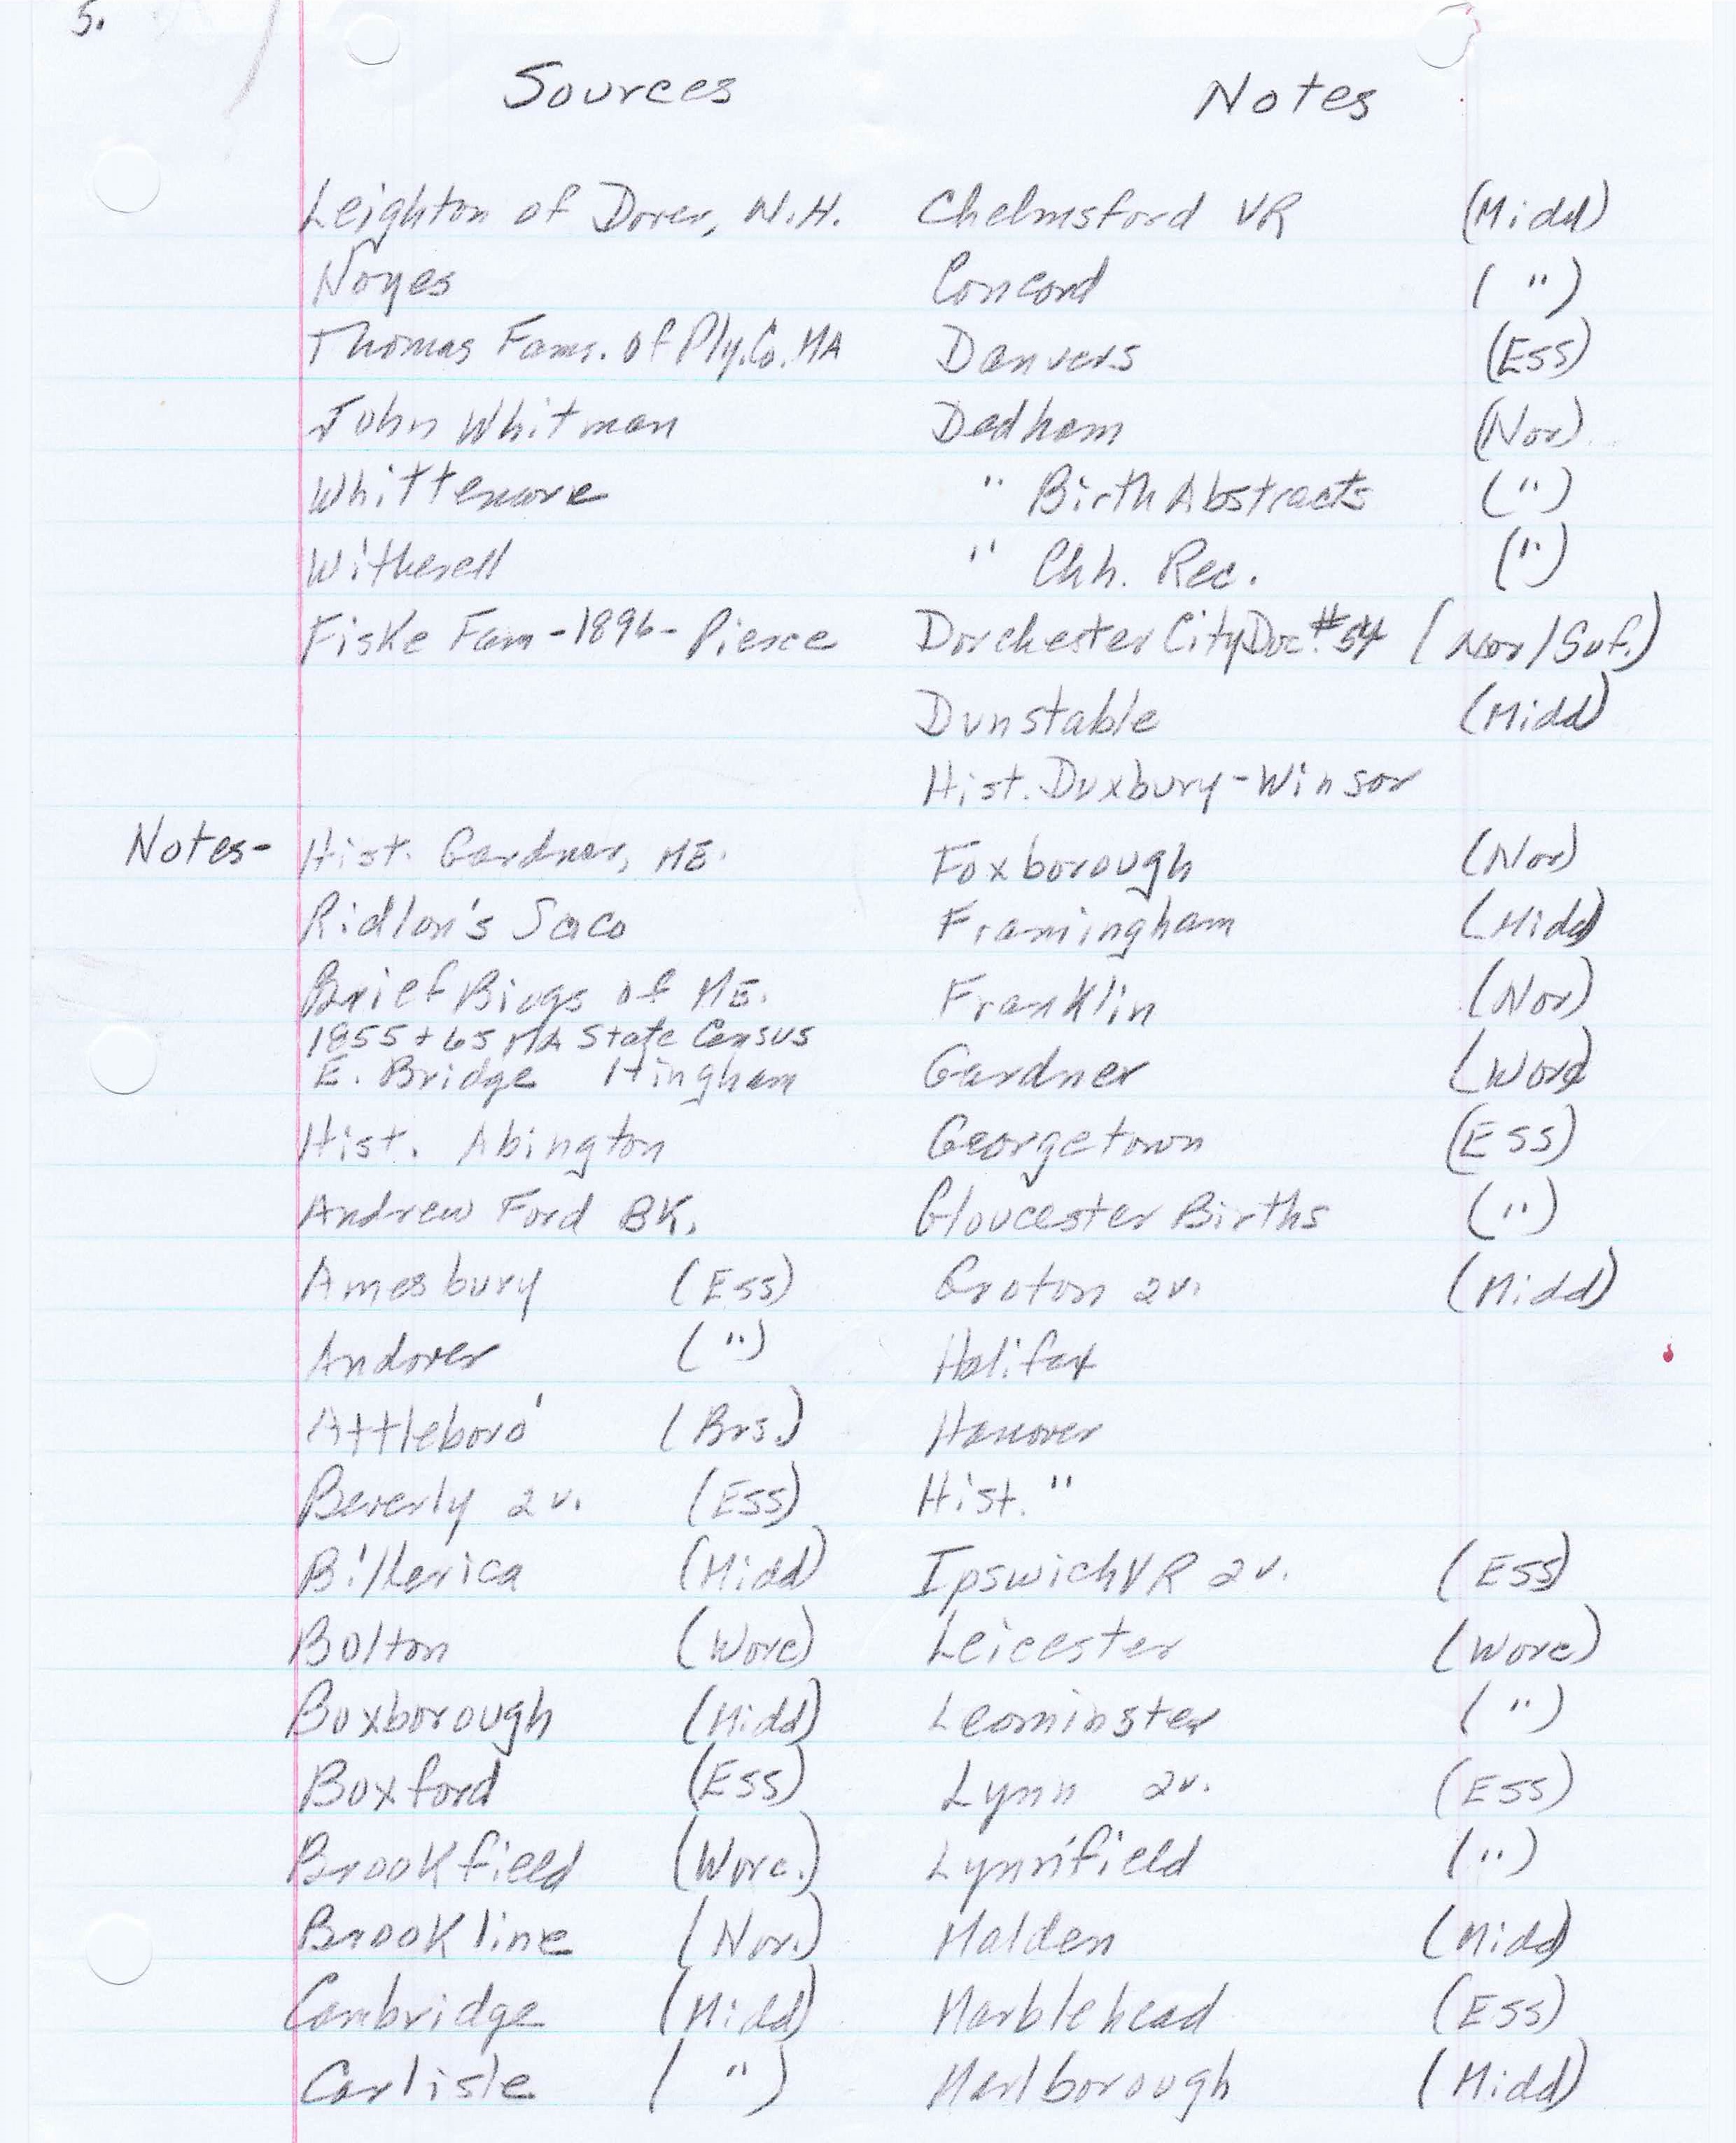 5.
Sources Notes
Leighton of Dover, N.H. Chelmsford VR (Midd)
Noyes Concord ( " )
Thomas Fams. of Ply. Co. MA Danvers (Ess)
John Whitman Dedham (Nor)
Whittemore " Birth Abstracts ( " )
Witherell " Chh. Rec. ( " )
Fiske Fam - 1896 - Pierce Dorchester City Doc. #54 (Nor/Suf.)
Dunstable (Midd)
Hist. Duxbury - Winsor
Notes - Hist. Gardner, ME. Foxborough (Nor)
Ridlon's Saco Framingham (Midd)
Brief Biogs of ME. Franklin (Nor)
1855 + 65 MA State Census
E. Bridge Hingham Gardner (Worc)
Hist. Abington Georgetown (Ess)
Andrew Ford BK. Gloucester Births ( " )
Amesbury (Ess) Groton 2v. (Midd)
Andover ( " ) Halifax
Attleboro' (Brs.) Hanover
Beverly 2v. (Ess) Hist. "
Billerica (Midd) Ipswich VR 2v. (Ess)
Bolton (Worc) Leicester (Worc)
Boxborough (Midd) Leominster ( " )
Boxford (Ess) Lynn 2v. (Ess)
Brookfield (Worc.) Lynnfield ( " )
Brookline (Nor.) Malden (Midd)
Cambridge (Midd) Marblehead (Ess)
Carlisle ( " ) Marlborough (Midd)